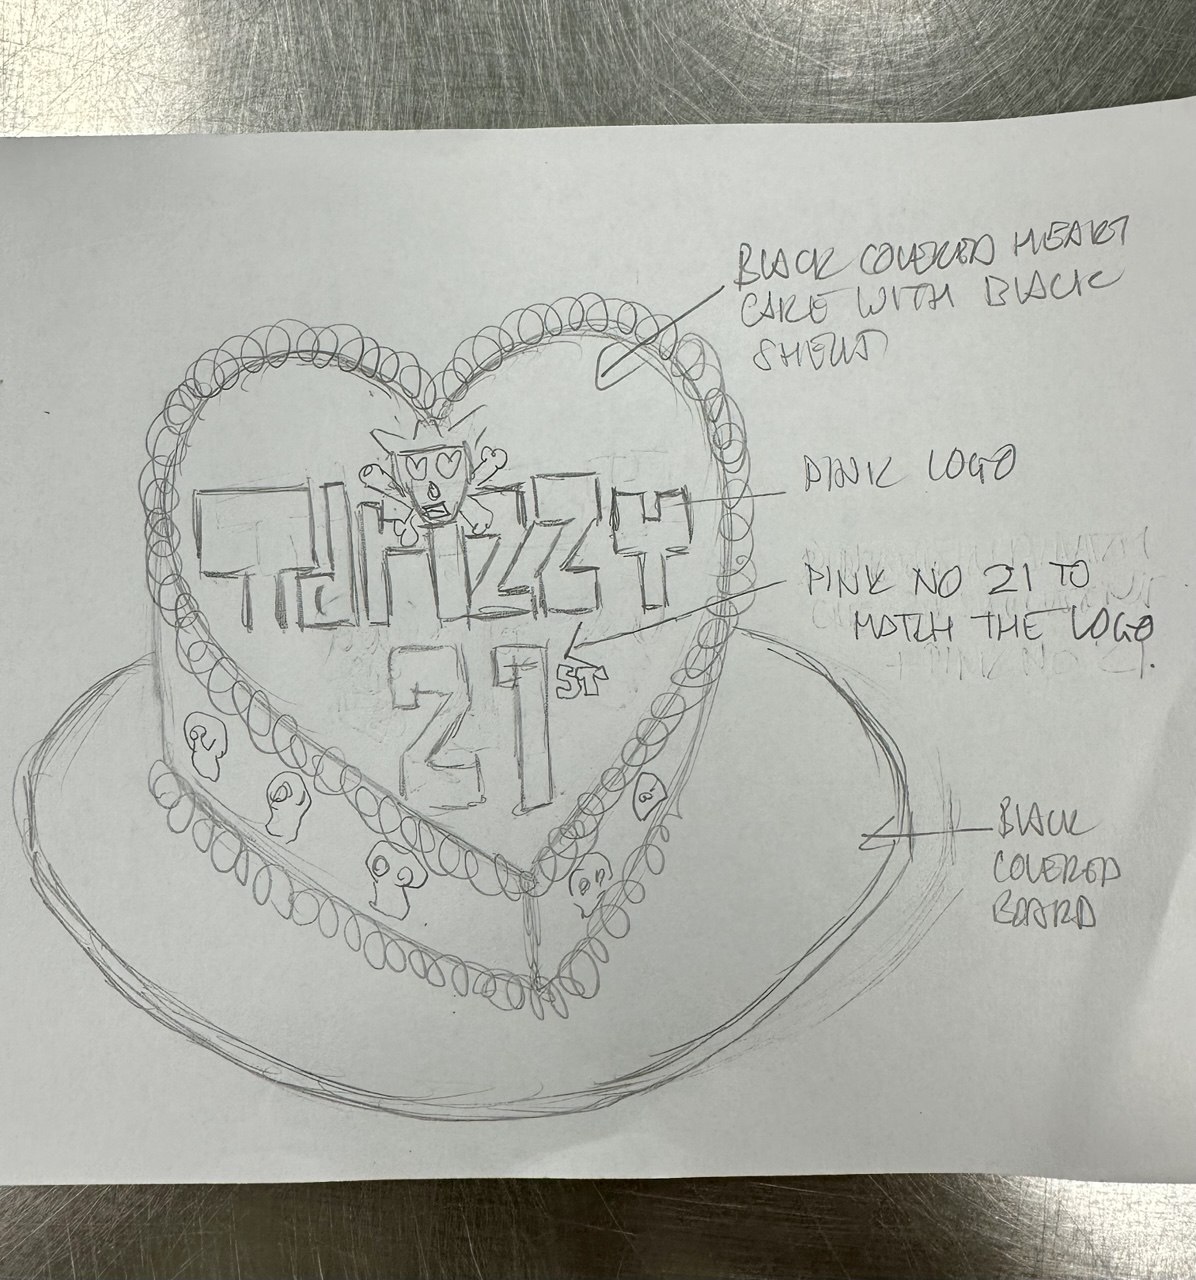 BLACK COVERED HEART
CAKE WITH BLACK
SHELLS
PINK LOGO
TdrizzY
PINK NO 21 TO
MATCH THE LOGO.
21ST
BLACK
COVERED
BOARD